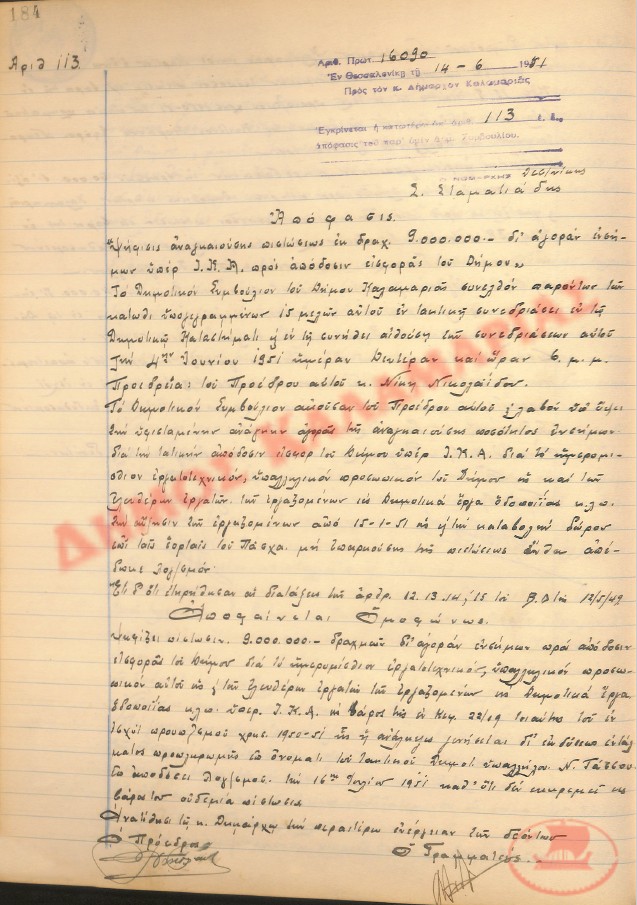 184
Αριθ 113.
Αριθ. Πρωτ. 16090
Έν Θεσσαλονίκη τη 14-6 1951
Πρός τόν κ. Δήμαρχον Καλαμαριάς
Έγκρίνεται ή κατωτέρω ύπ' άριθ. 113 έ. έ.
άπόφασις τού παρ' ύμίν Δημ. Συμβουλίου.
Ο ΝΟΜΑΡΧΗΣ Θεσ/νίκης
Σ. Σταματιάδης
Απόφασις.
Ψήφισις αναγκαιούσης πιστώσεως εκ δραχ. 9.000.000.- δι' αγοράν ενσή-
μων υπέρ Ι.Κ.Α. προς απόδοσιν εισφοράς του Δήμου„
Το Δημοτικόν Συμβούλιον του Δήμου Καλαμαριάς συνελθόν παρόντων των
κάτωθι υπογεγραμμένων 15 μελών αυτού εν τακτική συνεδριάσει εν τω
Δημοτικώ Καταστήματι και εν τη συνήθει αιθούση των συνεδριάσεων αυτού
την 4ην Ιουνίου 1951 ημέραν Δευτέραν και ώραν 6 μ.μ.
Προεδρεία: του Προέδρου αυτού κ. Νίκη Νικολαΐδου.
Το Δημοτικόν Συμβούλιον ακούσαν του Προέδρου αυτού και λαβόν υπ' όψει
την υφισταμένην ανάγκην αγοράς της αναγκαιούσης ποσότητος ενσήμων
δια την τακτικήν απόδοσιν εισφορ. του Δήμου υπέρ Ι.Κ.Α. δια το ημερομί-
σθιον εργατοτεχνικόν, υπαλληλικόν προσωπικόν του Δήμου ως και των
ελευθέρων εργατών των εργαζομένων εις Δημοτικά έργα οδοποιΐας κ.λ.π.
την αύξησιν των εργαζομένων από 15-1-51 ως και την καταβολήν δώρου
επί ταις εορταίς του Πάσχα. μη επαρκούσης της πιστώσεως
Έτι δ' ότι ετηρήθησαν αι διατάξεις των άρθρ. 12. 13. 14, 15 του Β.Δ 12/5/49
Αποφαίνεται Ομοφώνως.
Ψηφίζει πίστωσιν 9.000.000.- δραχμών δι' αγοράν ενσήμων προς απόδοσιν
εισφοράς του Δήμου δια το ημερομίσθιον εργατοτεχνικόν, υπαλληλικόν προσω-
πικόν αυτού ως και των ελευθέρων εργατών των εργαζομένων εις Δημοτικά έργα
οδοποιΐας κ.λ.π. υπέρ Ι.Κ.Α. εις βάρος της εν Κεφ. 22/49 τοιαύτης του εν
ισχύι προϋπ/σμού χρήσ. 1950-51 ης η ανάληψις γενήσεται δι' εκδόσεως εντάλ-
ματος προπληρωμής επ' ονόματι του τακτικού Δημοτ. υπαλλήλου Ν. Τάτσου
επ' αποδόσει λογ/σμού. την 16ην Ιουλίου 1951 καθ' ότι δεν εκκρεμεί εις
βάρος του ουδεμία πίστωσις
Αναθέτει τω κ. Δημάρχω την περαιτέρω ενέργειαν των δεόντων
Ο Πρόεδρος
Ο Γραμματεύς. -